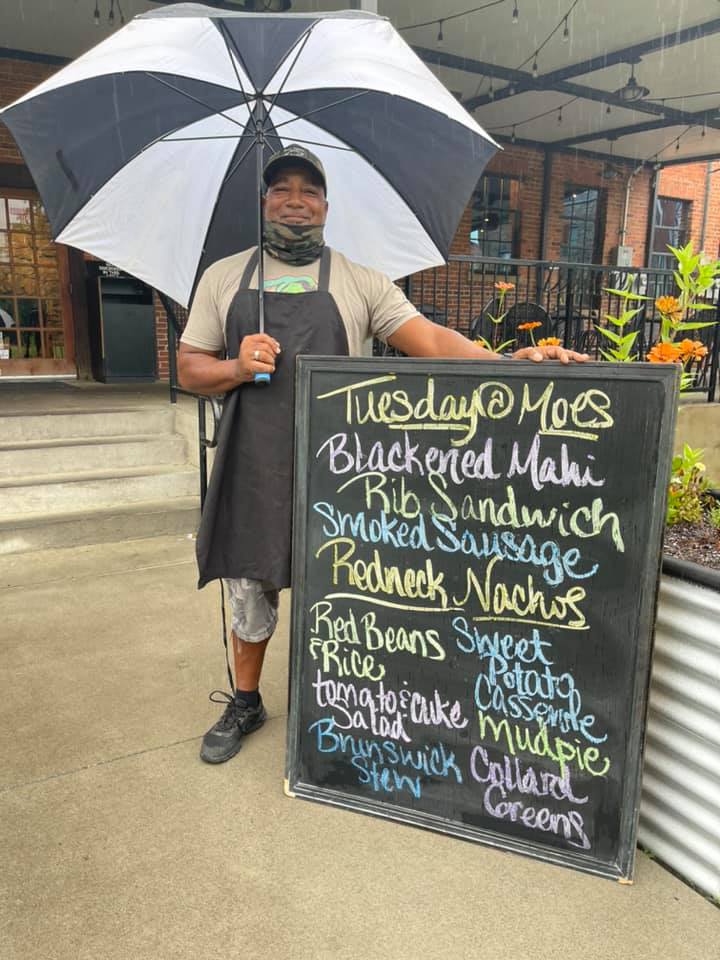 Tuesday @ Moes
Blackened Mahi
Rib Sandwich
Smoked Sausage
Redneck Nachos
Red Beans
& Rice
tomato & cuke
Salad
Brunswick
Stew
Sweet
Potato
Casserole
Mudpie
Collard
Greens